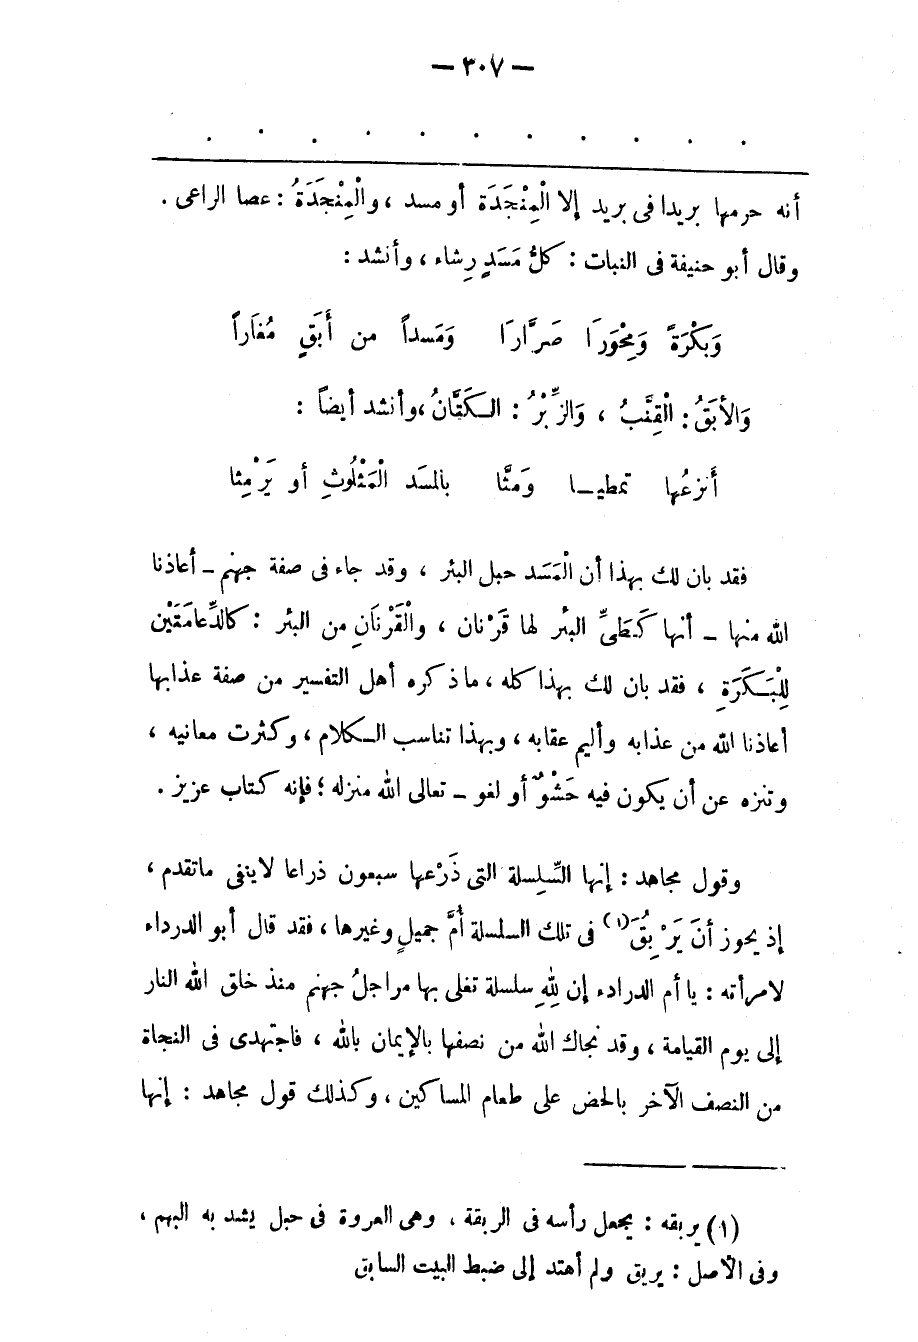 — ٣٠٧ —
. . . . . . . . . . .
أنه حرمها بريدا فى بريد إلا الْمِنْجَدَة أو مسد ، والْمِنْجَدَةُ : عصا الراعى .
وقال أبو حنيفة فى النبات : كلُّ مَسَدٍ رِشاء ، وأنشد :
وَبَكْرَةً وَمِحْوَرَا صَرَّارَا وَمَسداً من أَبَقٍ مُغَاراً
وَالأَبَقُ : الْقِنَّبُ ، وَالزِّبْرُ : الكَتَّانُ ، وأنشد أيضاً :
أَنزعُها تمطيا وَمَثَّا بالمسَد الْمَثْلُوثِ أو يَرْمِثا
فقد بان لك بهذا أن الْمَسَد حبل البئر ، وقد جاء فى صفة جهنم – أعاذنا
الله منها – أنها كَطَىِّ البئر لها قَرْنان ، والْقَرْنَانِ من البئر : كالدِّعامَتَيْن
لِلْبَكَرَةِ ، فقد بان لك بهذا كله ، ما ذكره أهل التفسير من صفة عذابها
أعاذنا الله من عذابه وأليم عقابه ، وبهذا تناسب الكلام ، وكثرت معانيه ،
وتنزه عن أن يكون فيه حَشْوٌ أو لغو – تعالى الله منزله ؛ فإنه كتاب عزيز .
وقول مجاهد : إنها السِّلِسلة التى ذَرْعها سبعون ذراعا لاينفى ماتقدم ،
إذ يجوز أنَ يَرْبِقُ(١) فى تلك السلسلة أُمَّ جميلٍ وغيرها ، فقد قال أبو الدرداء
لامرأته : يا أم الدرادء إن لِلّهِ سلسلة تغلى بها مراجلُ جهنم منذ خلق الله النار
إلى يوم القيامة ، وقد نجاك الله من نصفها بالإيمان بالله ، فاجتهدى فى النجاة
من النصف الآخر بالحض على طعام المساكين ، وكذلك قول مجاهد : إنها
(١) يربقه : يجعل رأسه فى الربقة ، وهى العروة فى حبل يشد به البهم ،
وفى الأصل : يريق ولم أهتد إلى ضبط البيت السابق